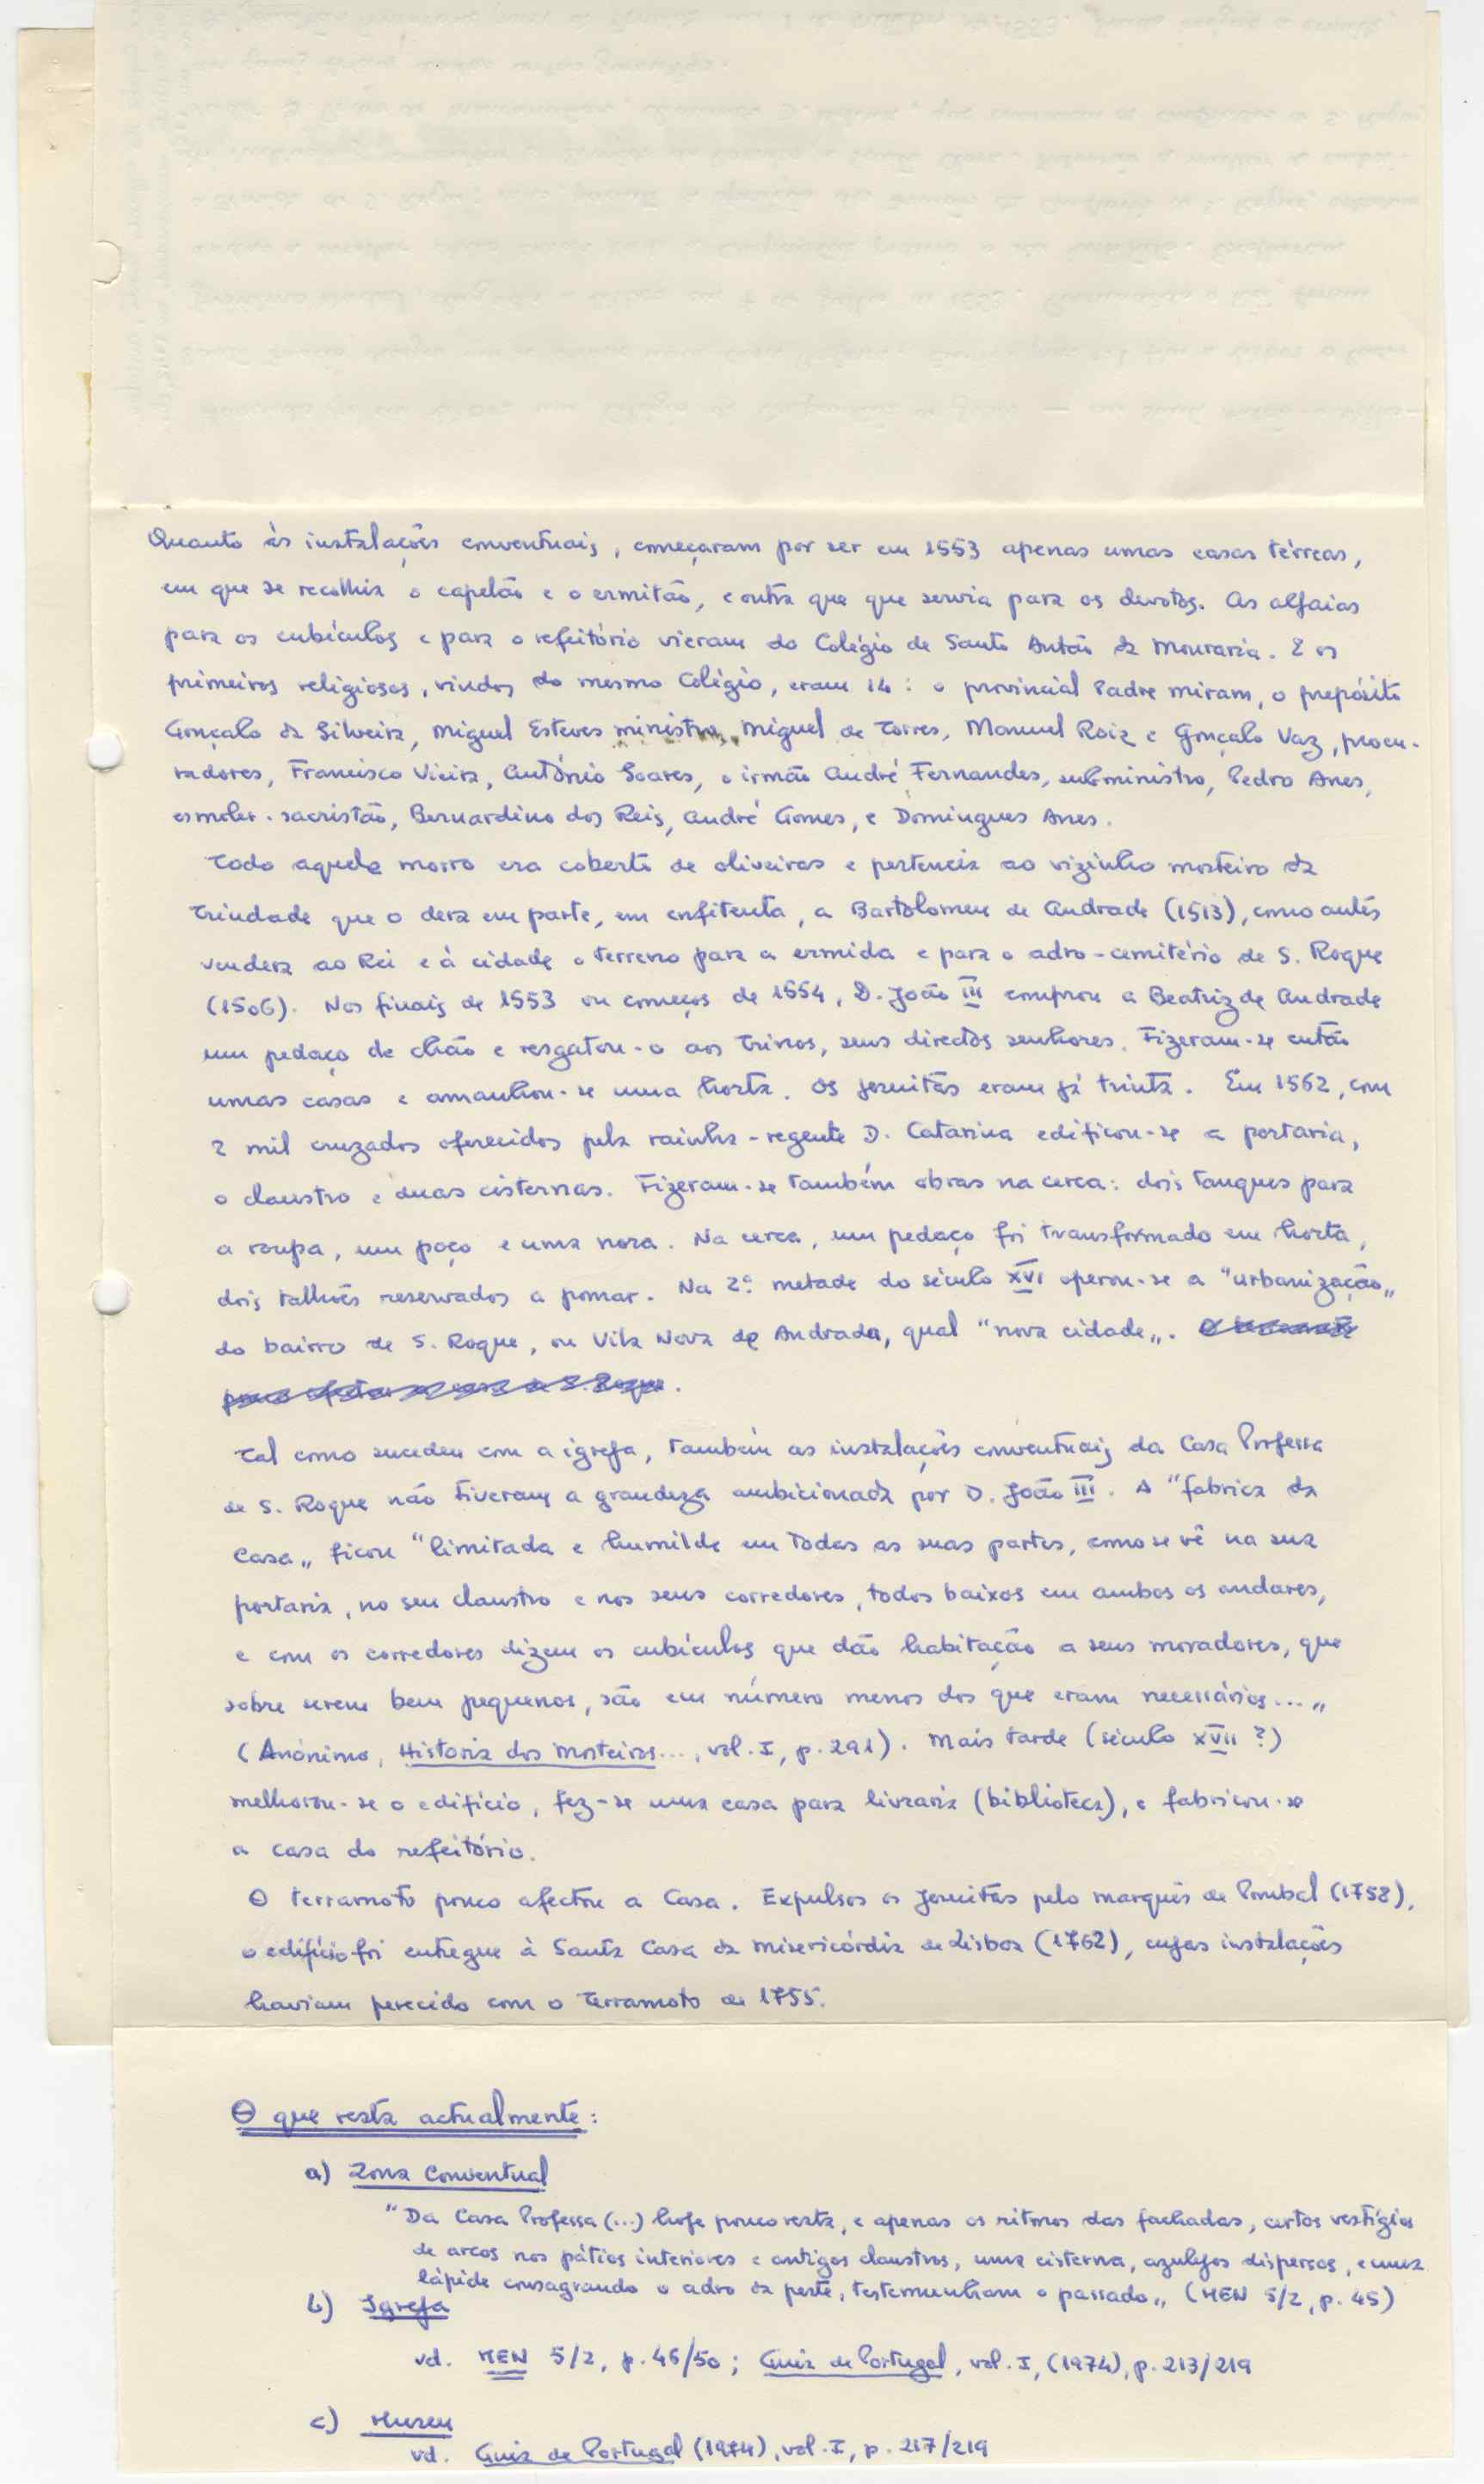 Quanto às instalações conventuais, começaram por ser em 1553 apenas umas casas térreas,
em que se recolhia o capelão e o ermitão, e outra que que servia para os devotos. As alfaias
para os cubículos e para o refeitório vieram do Colégio de Santo Antão da Mouraria. E os
primeiros religiosos, vindos do mesmo Colégio, eram 14: o provincial Padre Miram, o prepósito
Gonçalo da Silveira, Miguel Esteves ministro, Miguel de Torres, Manuel Roiz e Gonçalo Vaz, procu-
radores, Francisco Vieira, António Soares, o irmão André Fernandes, subministro, Pedro Anes,
esmoler-sacristão, Bernardino dos Reis, André Gomes, e Domingues Anes.
Todo aquele morro era coberto de oliveiras e pertencia ao vizinho mosteiro da
Trindade que o dera em parte, em enfiteuta, a Bartolomeu de Andrade (1513), como antes
vendera ao Rei e à cidade o terreno para a ermida e para o adro-cemitério de S. Roque
(1506). Nos finais de 1553 ou começos de 1554, D. João III comprou a Beatriz de Andrade
um pedaço de chão e resgatou-o aos Trinos, seus directos senhores. Fizeram-se então
umas casas e amanhou-se uma horta. Os jesuitas eram já trinta. Em 1562, com
2 mil cruzados oferecidos pela rainha-regente D. Catarina edificou-se a portaria,
o claustro e duas cisternas. Fizeram-se também obras na cerca: dois tanques para
a roupa, um poço e uma nora. Na cerca, um pedaço foi transformado em horta,
dois talhões reservados a pomar. Na 2ª metade do século XVI operou-se a "urbanização„
do bairro de S. Roque, ou Vila Nova de Andrada, qual "nova cidade„.
Tal como sucedeu com a igreja, também as instalações conventuais da Casa Professa
de S. Roque não tiveram a grandeza ambicionada por D. João III. A "fabrica da
Casa„ ficou "limitada e humilde em todas as suas partes, como se vê na sua
portaria, no seu claustro e nos seus corredores, todos baixos em ambos os andares,
e com os corredores dizem os cubículos que dão habitação a seus moradores, que
sobre serem bem pequenos, são em número menos dos que eram necessários..."
(Anónimo, Historia dos Mosteiros..., vol. I, p. 291). Mais tarde (século XVII ?)
melhorou-se o edifício, fez-se uma casa para livraria (biblioteca), e fabricou-se
a casa do refeitório.
O terramoto pouco afectou a Casa. Expulsos os Jesuitas pelo marquês de Pombal (1758),
o edifício foi entregue à Santa Casa da Misericórdia de Lisboa (1762), cujas instalações
haviam perecido com o Terramoto de 1755.
O que resta actualmente:
a) Zona Conventual
"Da Casa Professa (...) hoje pouco resta, e apenas os ritmos das fachadas, certos vestígios
de arcos nos pátios interiores e antigos claustros, uma cisterna, azulejos dispersos, e uma
lápide consagrando o adro da peste, testemunham o passado„ (MEN 5/2, p. 45)
b) Igreja
vd. MEN 5/2, p. 46/50; Guia de Portugal, vol. I, (1974), p. 213/219
c) Museu
vd. Guia de Portugal (1974), vol. I, p. 217/219